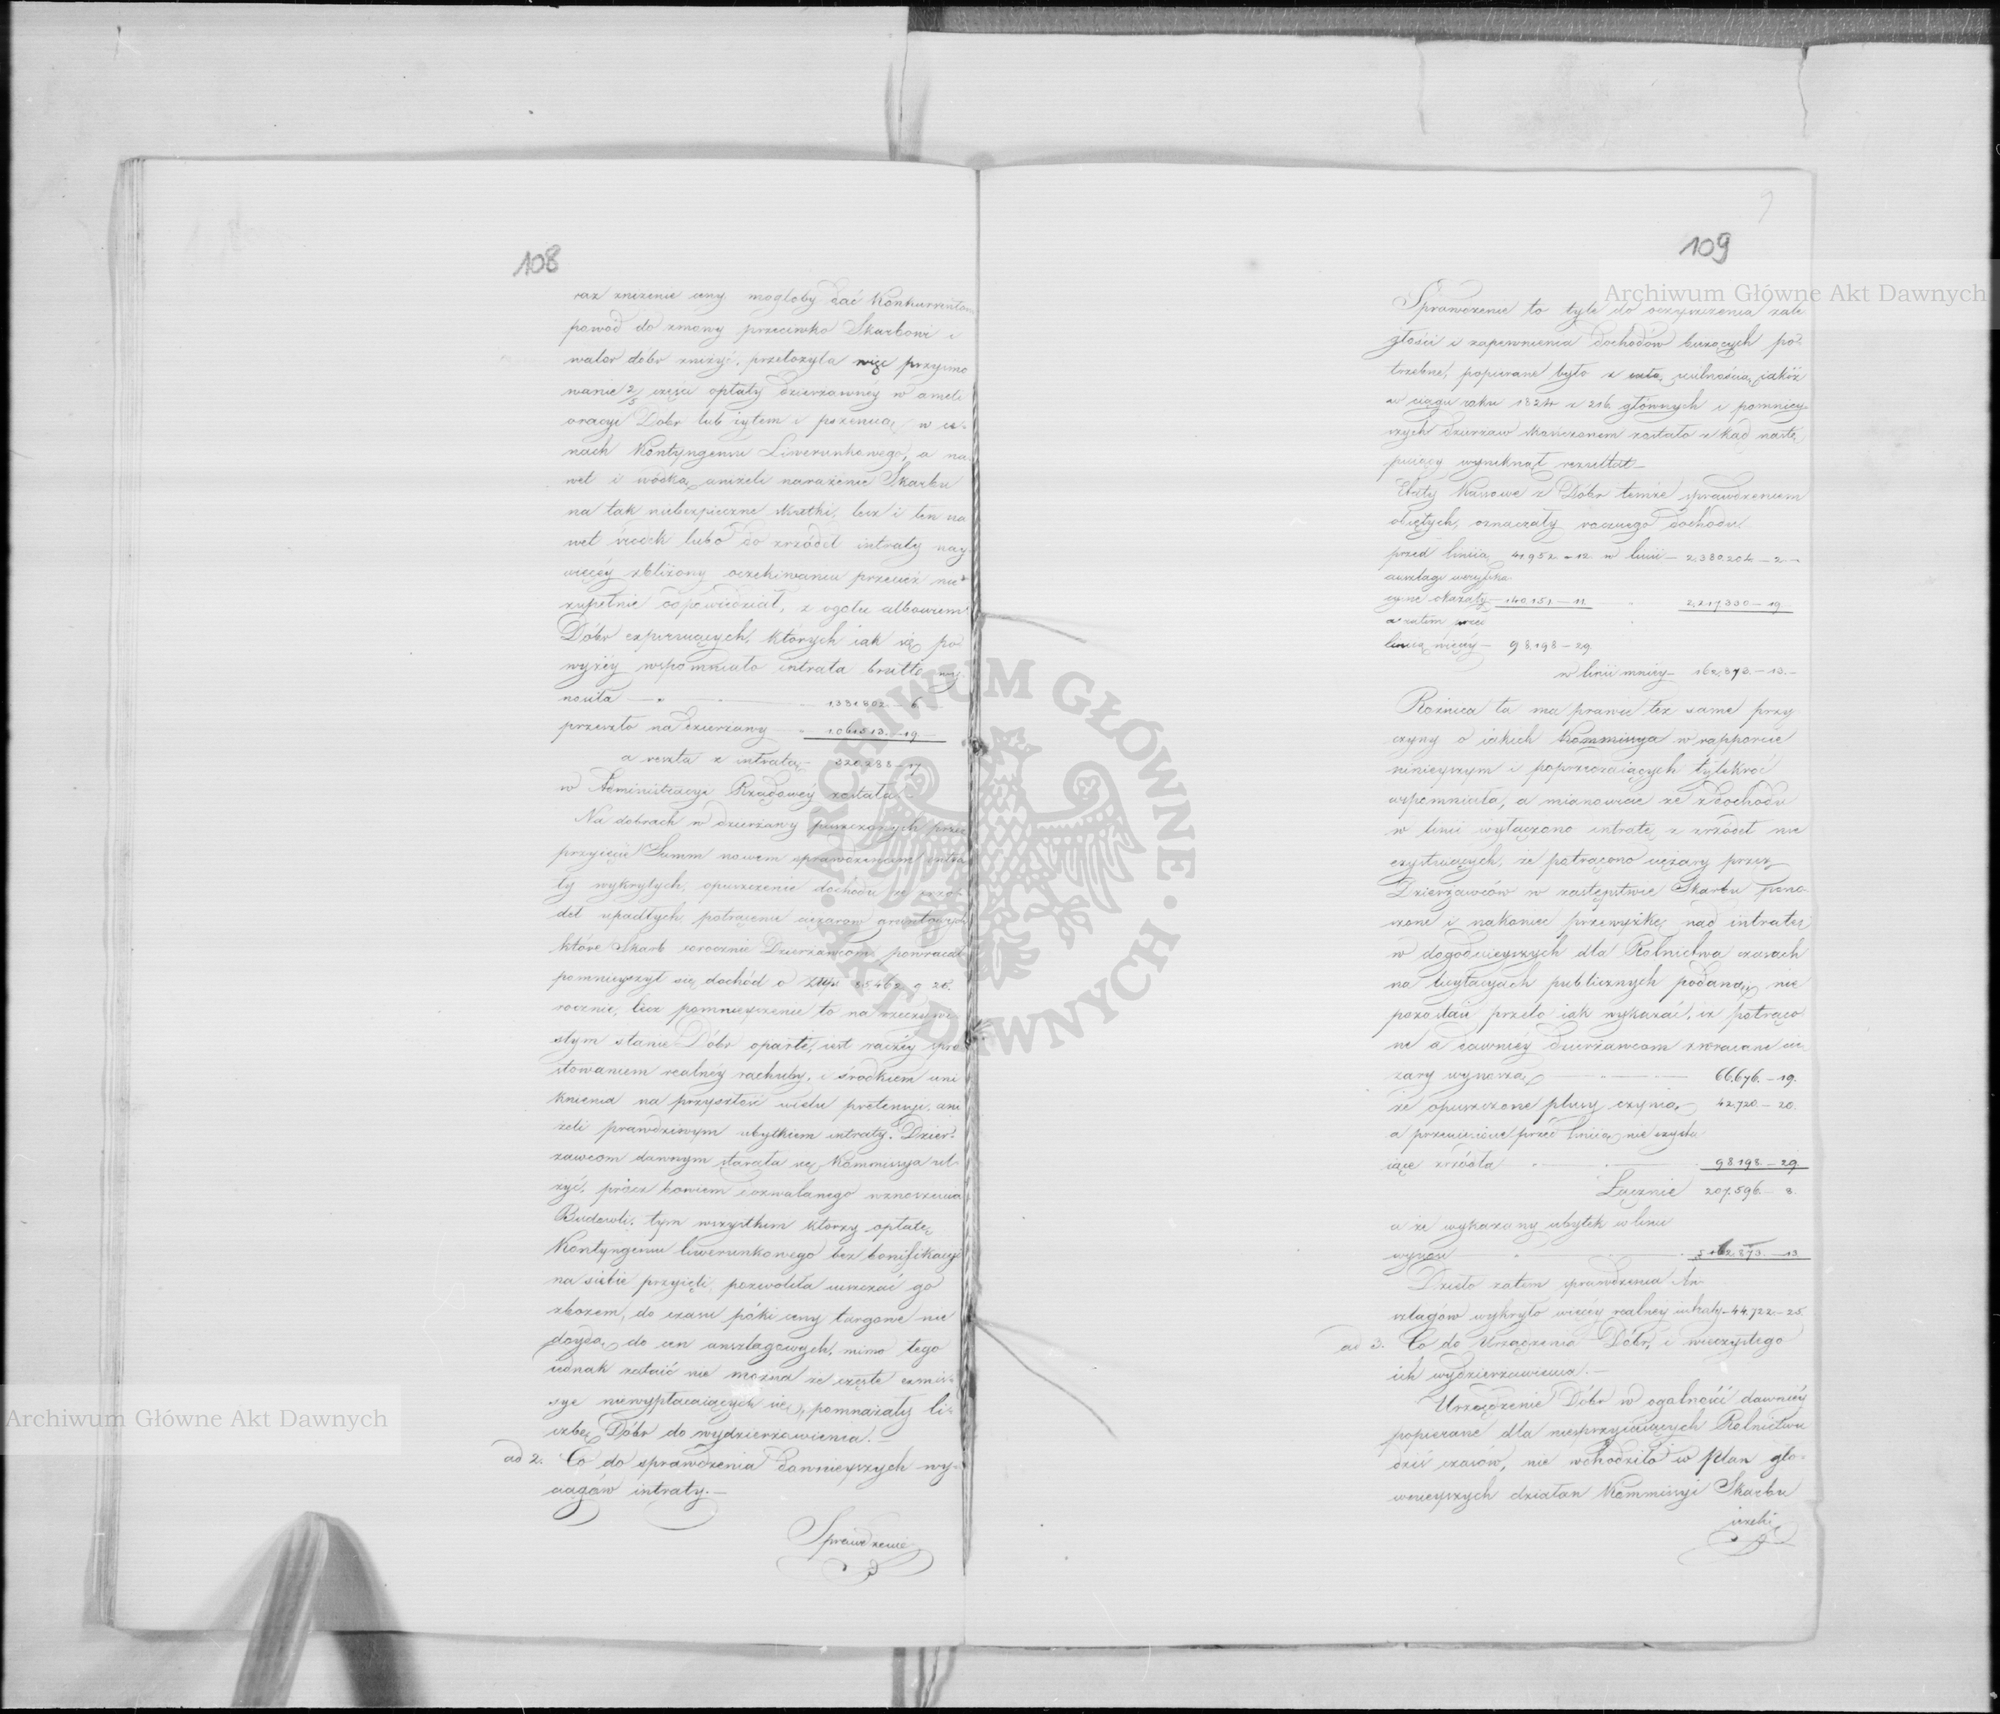 108
raz zniżenie ceny mogłoby dać Konkurrentom
powód do zmowy przeciwko Skarbowi i
walor dóbr zniżyć, przełożyła więc przyimo
wanie 2/3 części opłaty dzierżawnéy w ameli
oracyi Dóbr lub żytem i pszenicą w ce-
nach Kontyngensu Liwerunkowego, a na
wet i wódką, aniżeli narażenie Skarbu
na tak niebezpieczne skutki, lecz i ten na
wet środek lubo do zrzódeł intraty nay
więcéy zbliżony oczekiwaniu przecież nie
zupełnie odpowiedział, z ogółu albowiem
Dóbr expirujących, których iak się po
wyżéy wspomniało intrata brutto wy
nosiła 1.331.802.-6.
przeszło na dzierżawy 1.061.513.-19.
a reszta z intratą 320.288-17
w Administracyi Rządowéy została.
Na dobrach w dzierżawy puszczonych przez
przyięcie Summ nowem sprawdzeniem intra
ty wykrytych, opuszczenie dochodu ze zrzó-
deł upadłych, potrącenie ciężarów gruntowych
które Skarb corocznie Dzierżawcom powracał
pomnieyszył się dochód o Złłp. 85.462 g 28.
rocznie, lecz pomnieyszenie to na rzeczywi
stym stanie Dóbr oparte, iest raczéy spro
stowaniem realnéy rachuby, i środkiem uni
knienia na przyszłość wielu pretensyi, ani
żeli prawdziwym ubytkiem intraty. Dzier-
żawcom dawnym starała się Kommissya ul-
żyć, prócz bowiem dozwalanego wznoszenia
Budowli, tym wszystkim którzy opłatę
Kontyngensu liwerunkowego bez bonifikacyi
na siebie przyięli, pozwoliła uiszczać go
zbożem, do czasu póki ceny targowe nie
doydą do cen anszlagowych, mimo tego
iednak zataić nie można że częste exmis-
sye niewypłacaiących się, pomnażały li-
czbę Dóbr do wydzierżawienia.-
ad 2. Co do sprawdzenia dawnieyszych wy-
ciągów intraty.-
Sprawdzenie
109
Sprawdzenie to tyle do oczyszczenia zale
głości i zapewnienia dochodów bieżących po-
trzebne, popierane było z całą usilnością, iakoż
w ciągu roku 1824 z 216 głównych i pomniey-
szych dzierżaw skończonem zostało z kąd nastę-
puiący wyniknął rezultat-
Etaty Kassowe z Dóbr temże sprawdzeniem
obiętych, oznaczały rocznego dochodu
przed liniią 41.952.-12. w linii-2.380.204-2.-
anszlagi weryfika
cyine okazały-140.151-11. 2.217.330-19.
a zatem przed
linią więcéy- 98.198-29.
w linii mniéy- 162.873.-13.-
Różnica ta ma prawie też same przy
czyny o iakich Kommissya w rapporcie
ninieyszym i poprzedzaiących tylekroć
wspomniała, a mianowicie że z dochodu
w linii wyłączono intratę z zrzódeł nie
exystuiących, że potrącono ciężary przez
Dzierżawców w zastępstwie Skarbu pono-
szone i nakoniec przewyżkę nad intratę
w dogodnieyszych dla Rolnictwa czasach
na licytacyiach publicznych podaną, nie
pozostaie przeto iak wykazać, iż potrąco
ne a dawniéy dzierżawcom zwracane cię
żary wynoszą 66.676.-19.
że opuszczone plusy czynią 42.720-20.
a przeniesione przed linią nie exystu
iące zrzódła 98.198.-29.
Łącznie 207.596.-8.
a że wykazany ubytek w linii
wynosi 162.873.-13
Dzieło zatem sprawdzenia An-
szlagów wykryło więcéy realnéy intraty-44.722.-25.
ad 3. Co do Urządzenia Dóbr, i wieczystego
ich wydzierżawienia.-
Urządzenie Dóbr w ogólności dawniéy
popierane dla niesprzyiaiących Rolnictwu
dziś czasów, nie wchodziło w plan głó-
wnieyszych działań Kommissyi Skarbu
ieżeli
Archiwum Główne Akt Dawnych
Archiwum Główne Akt Dawnych
ARCHIWUM GŁÓWNE AKT DAWNYCH